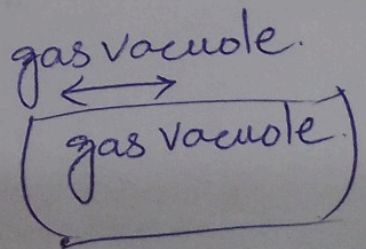 gas vacuole.
gas vacuole.